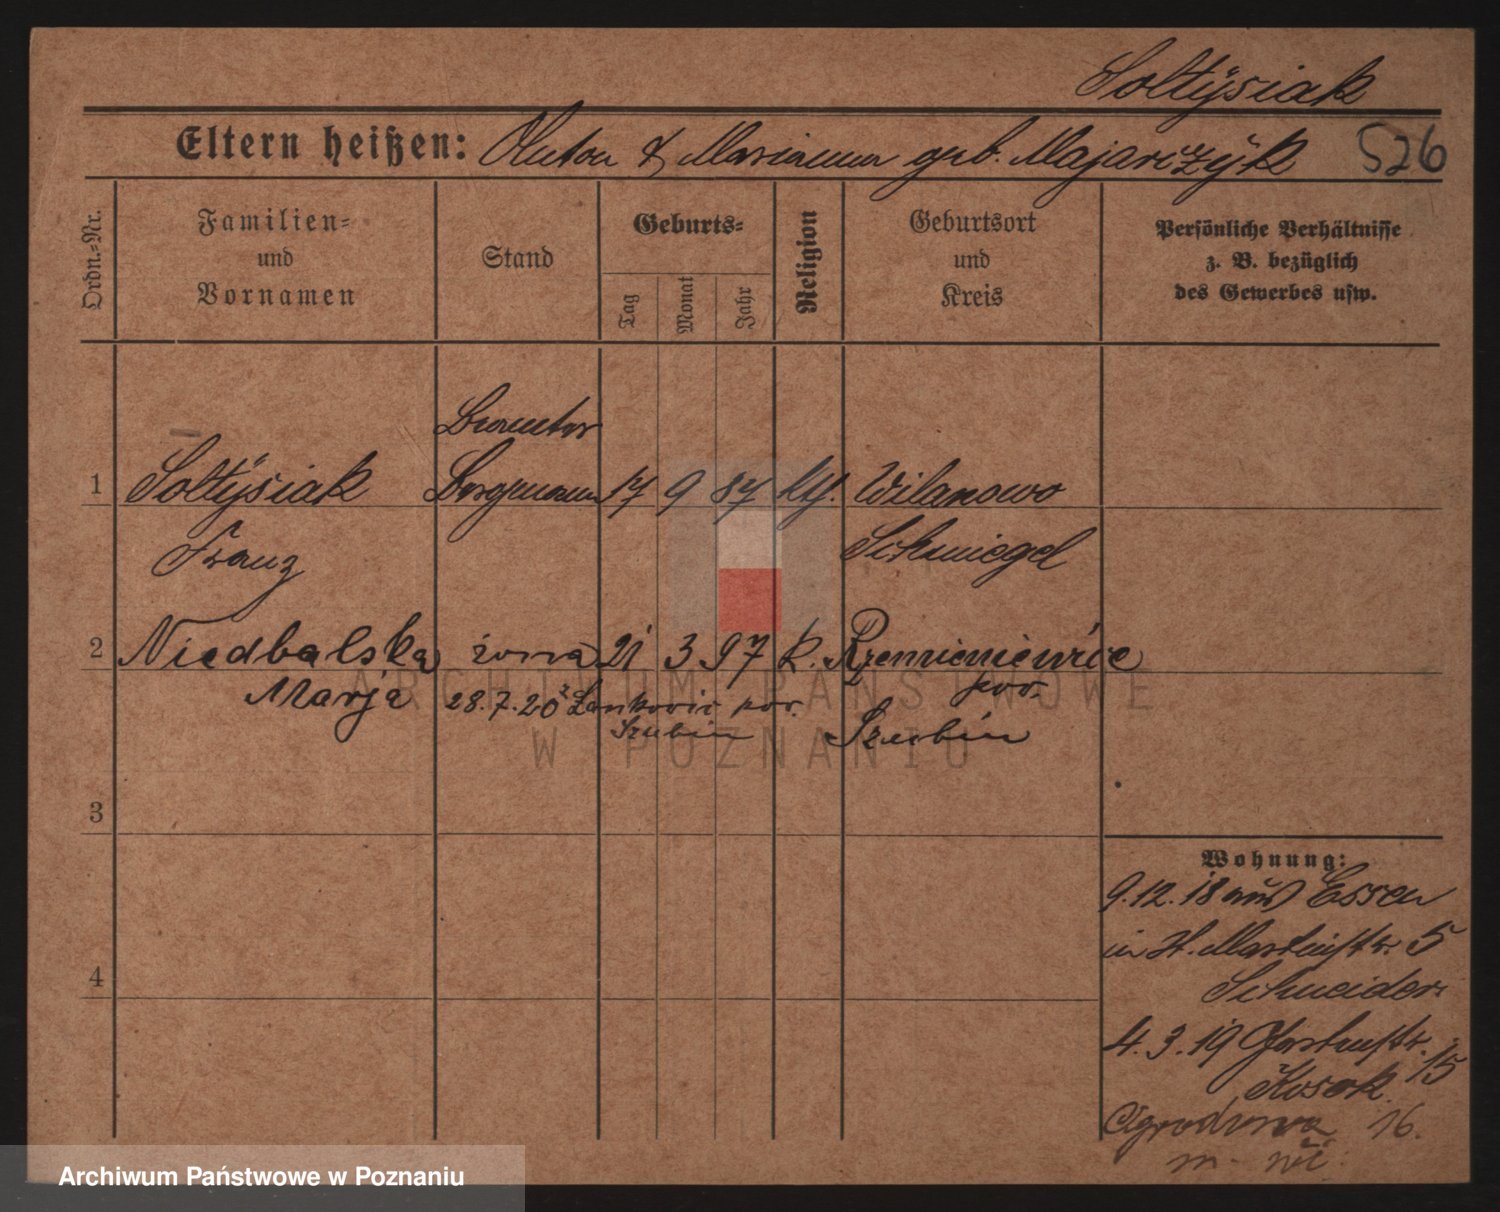 Soltysiak
Eltern heißen: Anton & Marianna geb. Majarczyk 526
Ordn.-Nr.
Familien- und Vornamen
Stand
Geburts-
Tag Monat Jahr
Religion
Geburtsort und Kreis
Persönliche Verhältnisse
z. B. bezüglich
des Gewerbes usw.
1 Soltysiak Bergmann 17 9 87 kth. Wilanowo
Franz Schmiegel
2 Niedbalska żona 21 3 97 k. Rzemieniewice
Marja 28.7.20 Żankowic pow. pow.
Szubin Szubin
3
4
Wohnung:
9.12.18 aus Essen
in St. Martinstr. 5
Schneider
4.3.19 Gartenstr. 15
Kosak
Ogrodowa 16.
ARCHIWUM PAŃSTWOWE
W POZNANIU
Archiwum Państwowe w Poznaniu